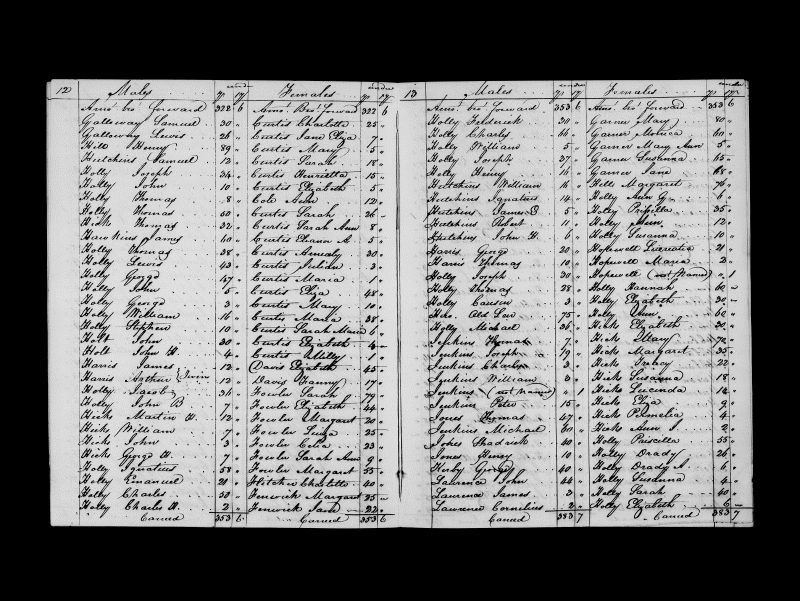 12 Males Females
Amo.t bro.t forward 322 6 Amo.t Bro.t forward 322 6
Galloway Samuel 30 " Curtis Charlotte 25 "
Galloway Lewis 26 " Curtis Jane Eliza 7 "
Hill Henry 89 " Curtis Mary 5 "
Hutchins Samuel 12 " Curtis Sarah 18 "
Holly Joseph 34 " Curtis Henrietta 15 "
Holly John 10 " Curtis Elizabeth 5 "
Holly Thomas 8 " Cole Ann 12 "
Holly Thomas 50 " Curtis Sarah 26 "
Hicks Thomas 32 " Curtis Sarah Ann 8 "
Hawkins James 60 " Curtis Elanor A 5 "
Holly Thomas 38 " Curtis 30 "
Holly Lewis 43 " Curtis Julian 3 "
Holly George 47 " Curtis Maria 1 "
Holly John 5 " Curtis Eliza 48 "
Holly George 3 " Curtis Mary 10 "
Holly William 16 " Curtis Maria 38 "
Holly Stephen 10 " Curtis Sarah Maria 6 "
Holt John 30 " Curtis Elizabeth 4 "
Holt John H 4 " Curtis Milly 1 "
Harris James 12 " Davis Elizabeth 45 "
Harris Arthur } Twin 12 " Davis Fanny 17 "
Holly Jacob 36 " Fowler Sarah 79 "
Holly John B 7 " Fowler Elizabeth 44 "
Hicks Martin H 12 " Fowler Margaret 20 "
Hicks William 7 " Fowler Luiza 25 "
Hicks John 3 " Fowler Celia 23 "
Hicks George H. 7 " Fowler Sarah Ann 9 "
Holly Ignatius 58 " Fowler Margaret 55 "
Holly Emanuel 21 " Fletcher Charlotte 40 "
Holly Charles 30 " Fenwick Margaret 35 "
Holly Charles H. 2 " Fenwick Jane 22 "
Carried 353 6 Carried 353 6
13 Males Females
Amo.t bro.t forward 353 6 Amo.t bro.t forward 353 6
Holly Frederick 30 " Garner Mary 80 "
Holly Charles 66 " Garner Monica 60 "
Holly William 5 " Garner Mary Ann 5 "
Holly Joseph 37 " Garner Susanna 65 "
Holly Henry 16 " Garner Jane 68 "
Hutchins William 16 " Hill Margaret 76 "
Hutchins Ignatius 14 " Holly Ann G. 6 "
Hutchins James 5 " Holly Priscilla 35 "
Hutchins Robert 11 " Holly Ann 12 "
Hutchins John H. 6 " Holly Susanna 10 "
Harris George 20 " Hopewell Lucretia 21 "
Harris Thomas 10 " Hopewell Maria 2 "
Holly Joseph 30 " Hopewell (not Named) " 1
Holly Thomas 28 " Holly Hannah 60 "
Holly 3 " Holly Elizabeth 30 "
Old 75 " Holly Ann 60 "
Holly Michael 36 " Hicks Elizabeth 30 "
Jenkins Thomas 7 " Hicks Mary 72 "
Jenkins Joseph 79 " Hicks Margaret 35 "
Jenkins Charles 3 " Hicks 22 "
Jenkins William 3 " Hicks Susanna 18 "
Jenkins (not Named) " 1 Hicks Lucinda 14 "
Jenkins Peter 15 " Hicks Eliza 9 "
Jones Thomas 47 " Hicks Permelia 4 "
Jenkins Michael 30 " Hicks Ann 2 "
Jones Shadrick 40 " Holly Priscilla 55 "
Jones Henry 10 " Holly Drady 26 "
Kerby George 40 " Holly Drady A. 6 "
Laurence John 44 " Holly Susanna 4 "
Laurence James 3 " Holly Sarah 40 "
Lawrence Cornelius 2 " Holly Elizabeth 6 "
Carried 383 7 Carried 383 7